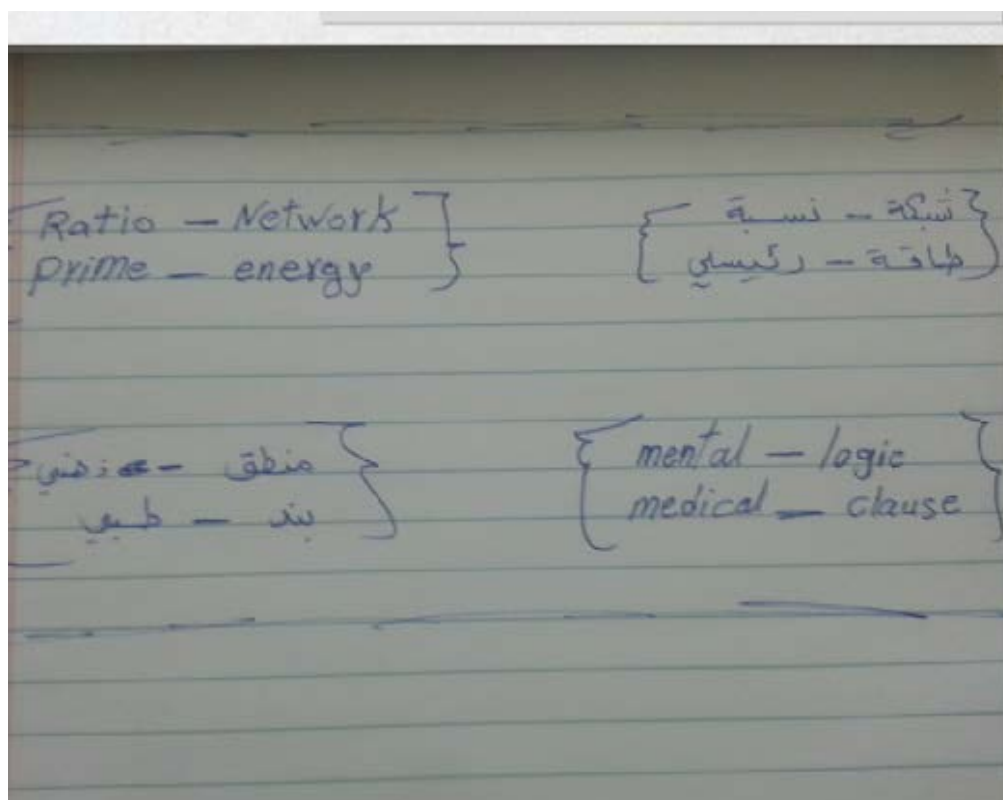 Ratio – Network
Prime – energy
شبكة – نسبة
طاقة – رئيسي
منطق – ذهني
بند – طبي
mental – logic
medical – clause